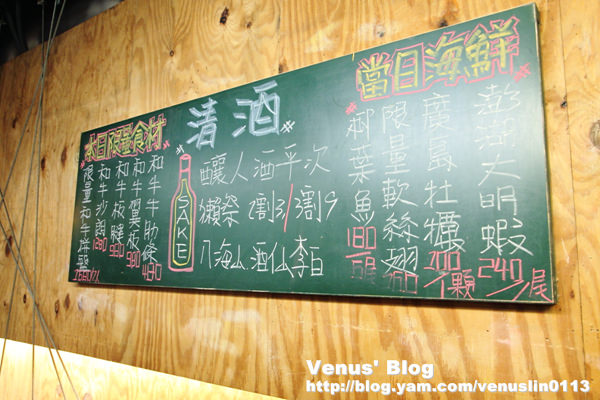 當日海鮮
澎湖大明蝦
240/尾
廣島牡蠣
/顆
限量軟絲翅
柳葉魚
180
清酒
釀人酒平次
獺祭 2割3/3割9
八海山.酒仙李白
SAKE
本日限量食材
和牛牛肋條
480
和牛翼板
980
和牛板腱
和牛沙朗
限量和牛
Venus' Blog
http://blog.yam.com/venuslin0113